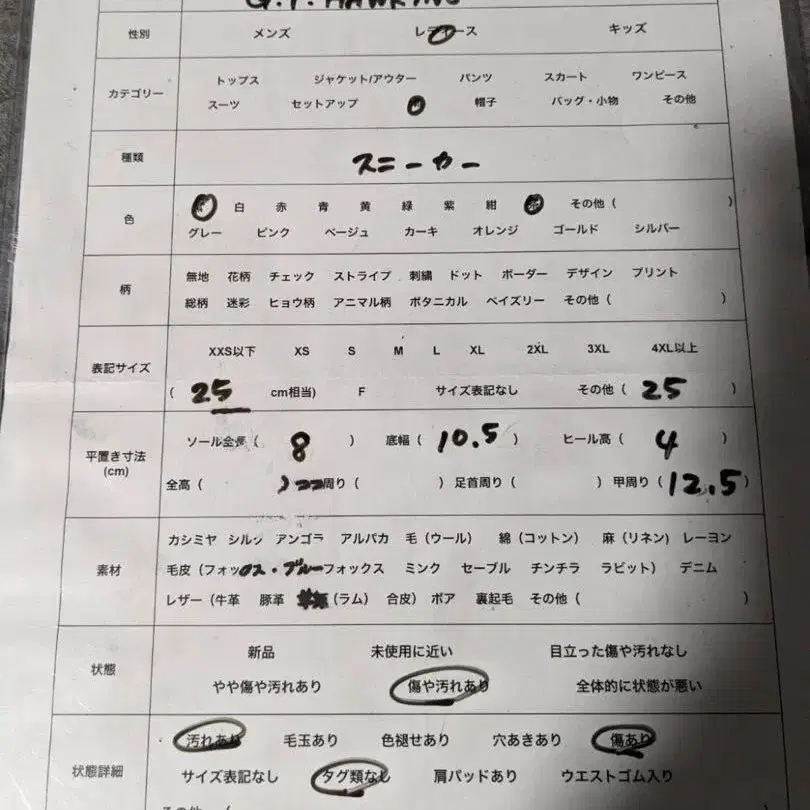 G.T. HAWKINS
性別 メンズ レディース キッズ
カテゴリー
トップス ジャケット/アウター パンツ スカート ワンピース
スーツ セットアップ 帽子 バッグ・小物 その他
種類 スニーカー
色
白 赤 青 黄 緑 紫 紺 その他 ( )
グレー ピンク ベージュ カーキ オレンジ ゴールド シルバー
柄
無地 花柄 チェック ストライプ 刺繍 ドット ボーダー デザイン プリント
総柄 迷彩 ヒョウ柄 アニマル柄 ボタニカル ペイズリー その他 ( )
表記サイズ
XXS以下 XS S M L XL 2XL 3XL 4XL以上
( 25 cm相当) F サイズ表記なし その他 ( 25 )
平置き寸法
(cm)
ソール全長 ( 8 ) 底幅 ( 10.5 ) ヒール高 ( 4 )
全高 ( ) 周り ( ) 足首周り ( ) 甲周り ( 12.5 )
素材
カシミヤ シルク アンゴラ アルパカ 毛（ウール） 綿（コットン） 麻（リネン） レーヨン
毛皮（フォックス・ブルーフォックス ミンク セーブル チンチラ ラビット） デニム
レザー（牛革 豚革 （ラム） 合皮） ボア 裏起毛 その他 ( )
状態
新品 未使用に近い 目立った傷や汚れなし
やや傷や汚れあり 傷や汚れあり 全体的に状態が悪い
状態詳細
汚れあり 毛玉あり 色褪せあり 穴あきあり 傷あり
サイズ表記なし タグ類なし 肩パッドあり ウエストゴム入り
その他 (